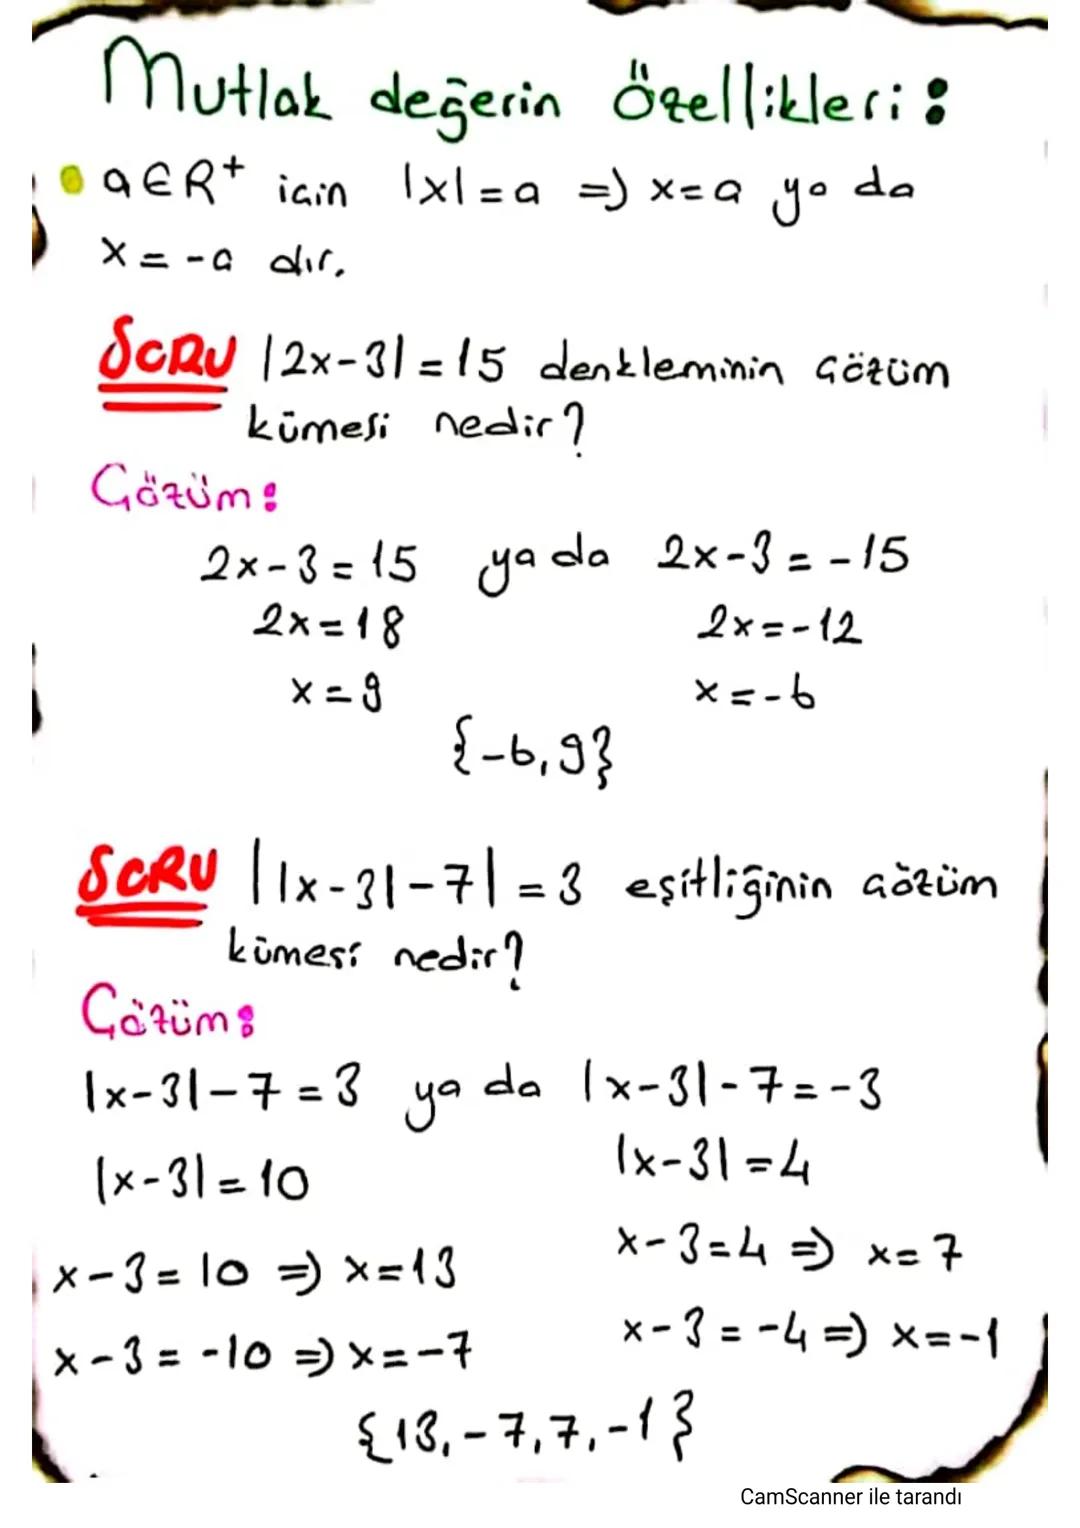 Mutlak değerin Özellikleri:
a∈R⁺ için |x|=a ⇒ x=a ya da
x=-a dır.
SORU |2x-3|=15 denkleminin çözüm
kümesi nedir?
Çözüm:
2x-3=15 ya da 2x-3=-15
2x=18 2x=-12
x=9 x=-6
{-6,9}
SORU ||x-3|-7|=3 eşitliğinin çözüm
kümesi nedir?
Çözüm:
|x-3|-7=3 ya da |x-3|-7=-3
|x-3|=10 |x-3|=4
x-3=10 ⇒ x=13 x-3=4 ⇒ x=7
x-3=-10 ⇒ x=-7 x-3=-4 ⇒ x=-1
{13,-7,7,-1}
CamScanner ile tarandı